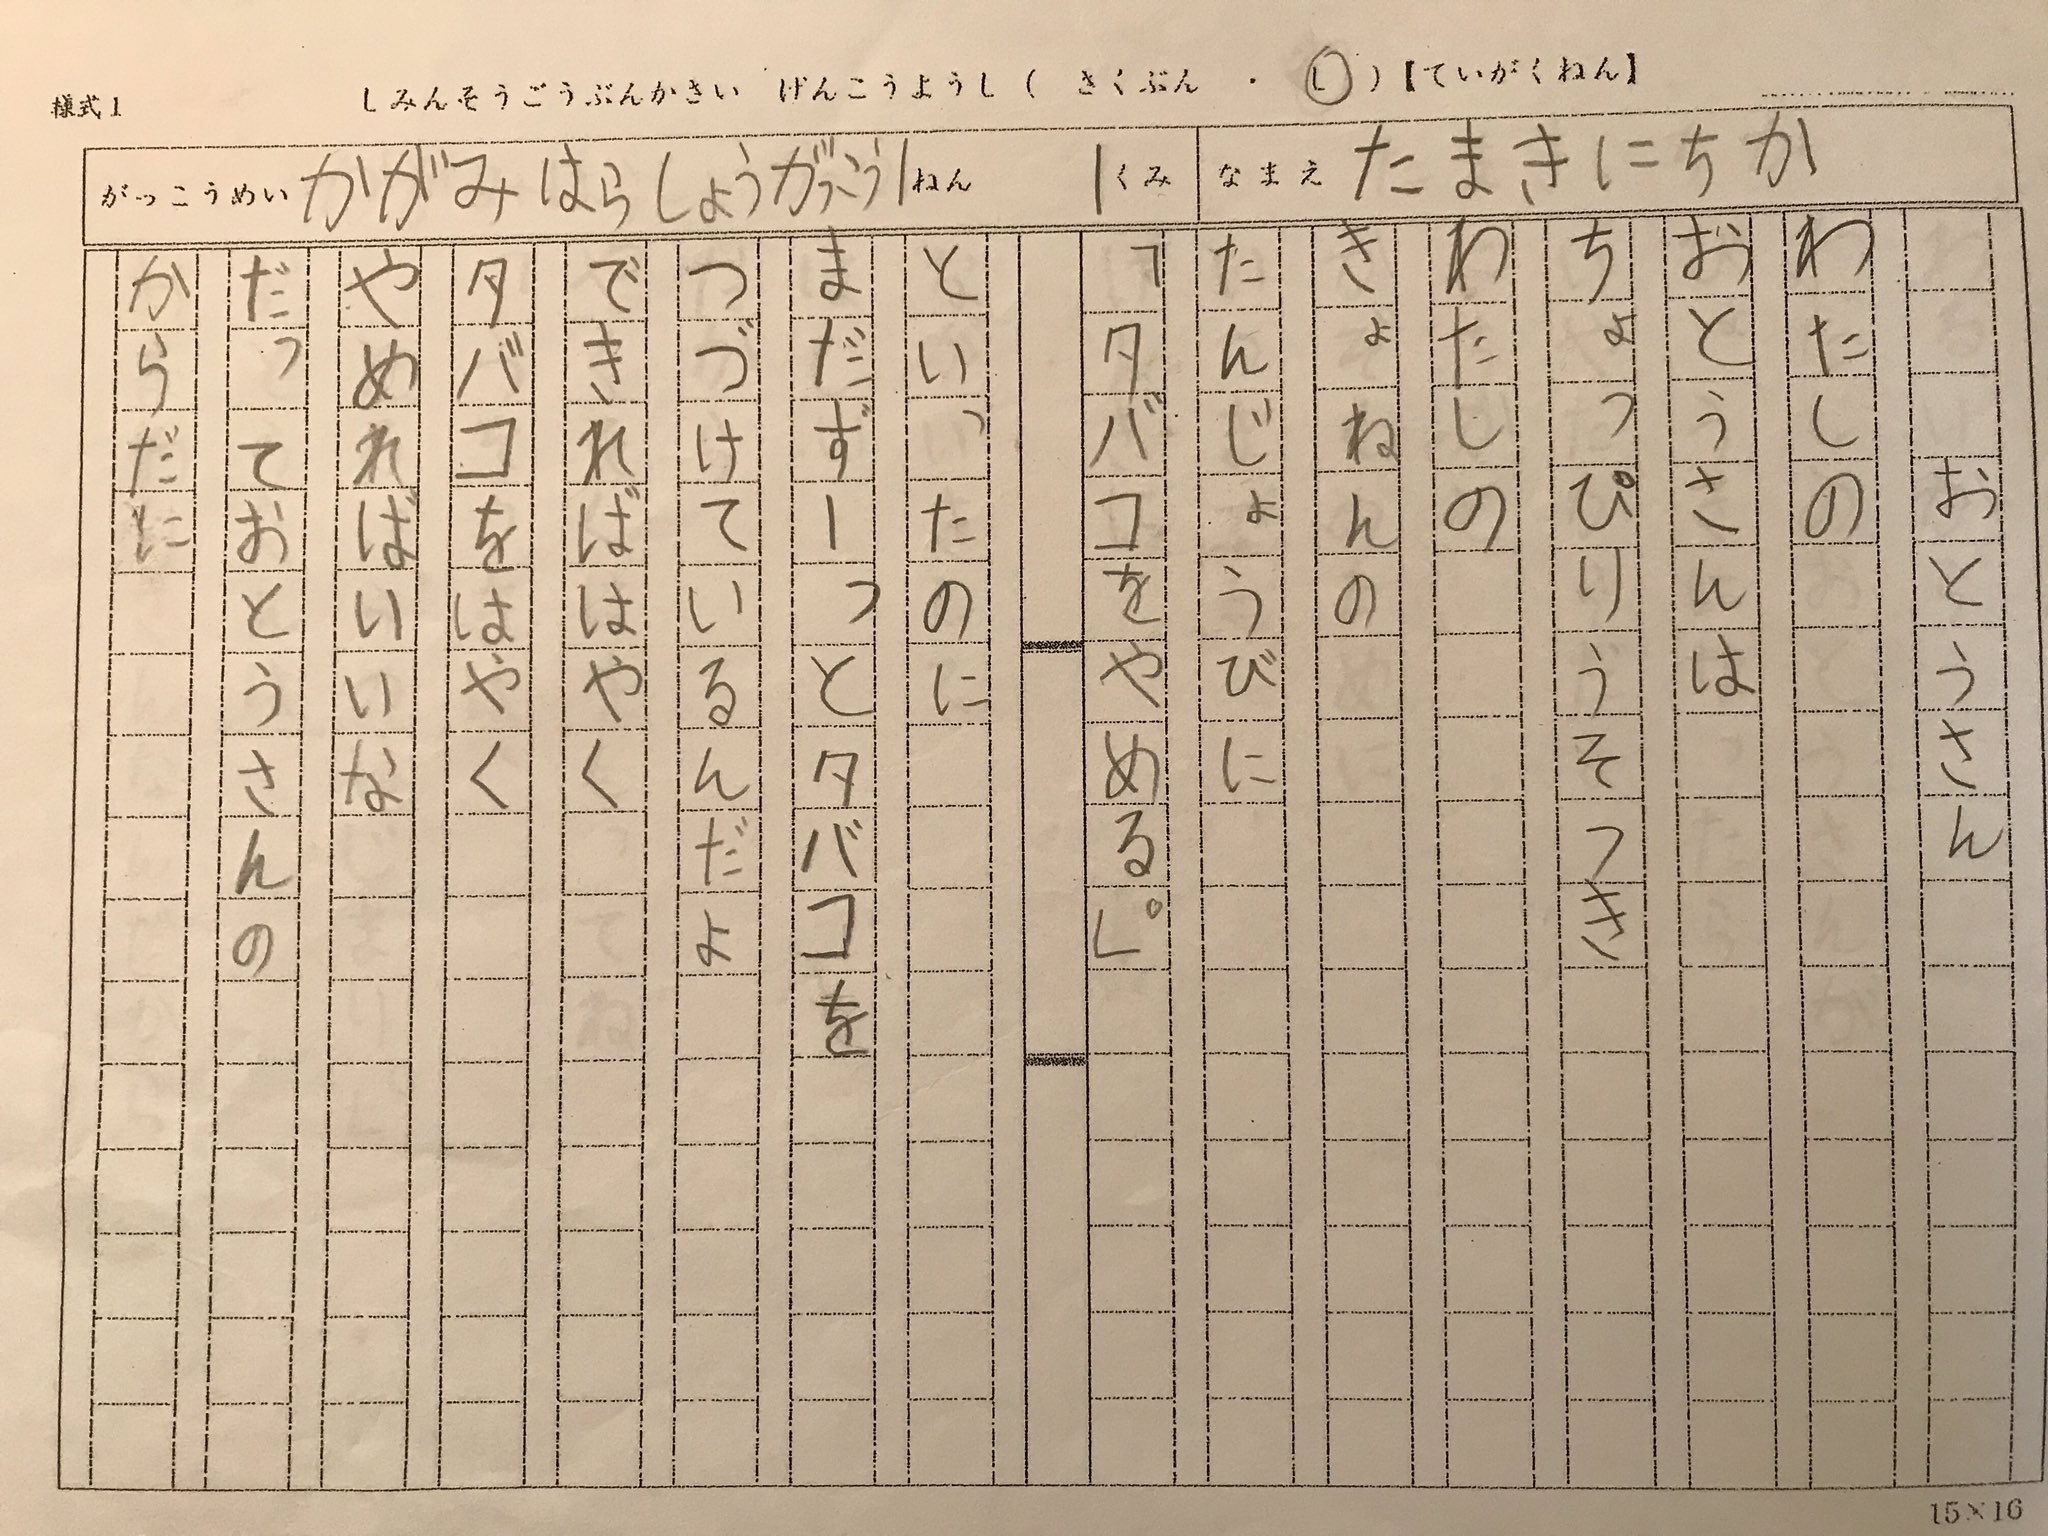 様式1
しみんそうごうぶんかさい げんこうようし( さくぶん ・ し )【ていがくねん】
がっこうめい かがみはらしょうがっこう 1ねん 1くみ なまえ たまきにちか
おとうさん
わたしの
おとうさんは
ちょっぴりうそつき
わたしの
きょねんの
たんじょうびに
「タバコをやめる。」
といったのに
まだずーっとタバコを
つづけているんだよ
できればはやく
タバコをはやく
やめればいいな
だっておとうさんの
からだに
15×16